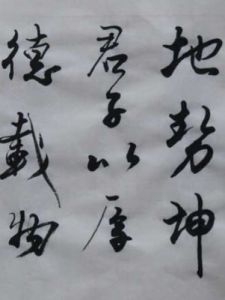 地势坤
君子以厚
德载物